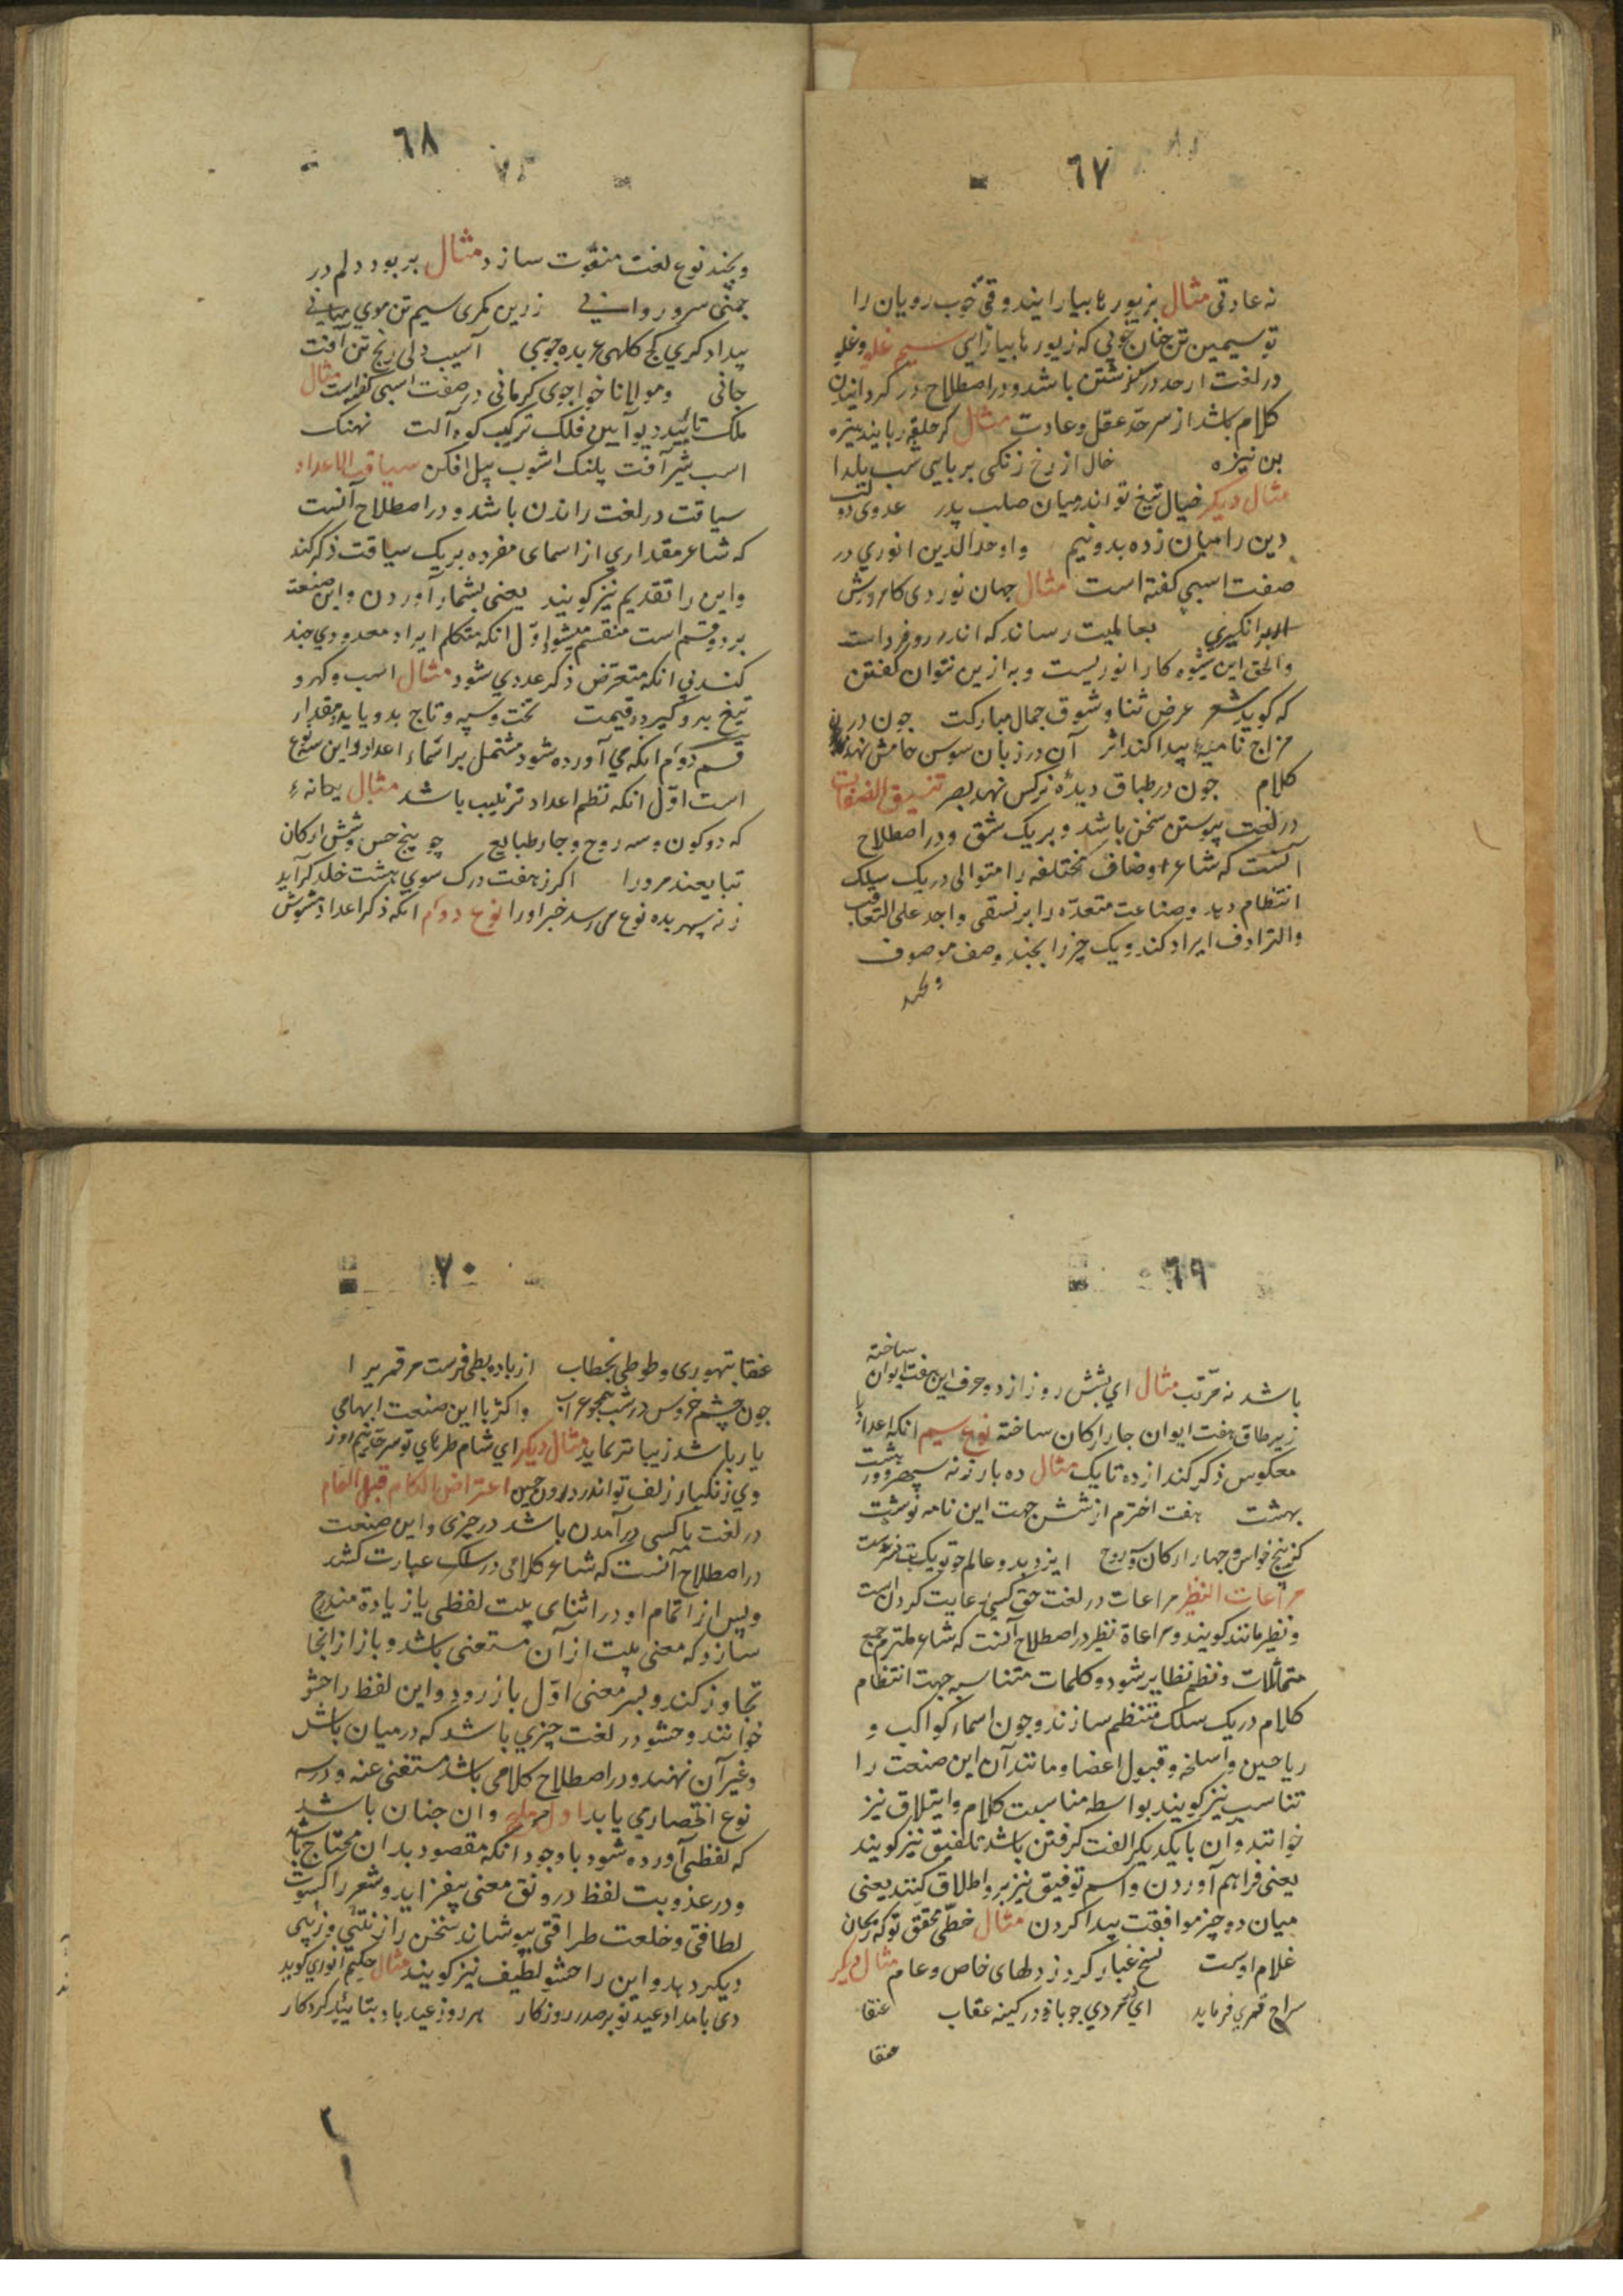 ٦٧
نه عادتی مثال بزیورها بیارایند وقتی خوب رویان را
تو سیمین تن چنان خوبی که زیورها بیارایی سیم غلو وغلو
در لغت از حد درگذشتن باشد و در اصطلاح در گردانیدن
کلام باشد از سرحد عقل وعادت مثال گر حلقه ربایند بنیزه
بن نیزه خال از رخ زنکی بربایی شب یلدا
مثال دیکر خیال تیغ تو اندر میان صلب پدر عدوی دو لت
دین را میان زده بدونیم واوحد الدین انوری در
صفت اسبی کفته است مثال جهان نوردی کامروزش
ار برانکیزی بعالمیت رساند که اندرو فرداست
والحق این شیوه کار انوریست وبه ازین نتوان کفتن
که کوید شعر عرض ثنا وشوق جمال مبارکت چون در
مزاج نامیه پیدا کند اثر آن در زبان سوسن خامش نهد
کلام چون در طباق دیدۀ نرکس نهد بصر تنسیق الصفات
در لغت پیوستن سخن باشد وبریک نسق ودر اصطلاح
آنست که شاعر اوصاف مختلفه را متوالی در یک سلک
انتظام دهد وصناعت متعدّه را بر نسقی واحد علی التعاقب
والترادف ایراد کند ویک چیز را بچند وصف موصوف
وبچند
٦٨
وبچند نوع لغت منعوت سازد مثال بربود دلم در
چمنی سرو روانی زرین کمری سیم تن موی میانی
بیدادکری کج کلهی عربده جویی آسیب دلی رنج تن آفت
جانی ومولانا خواجوی کرمانی در صفت اسبی کفته است مثال
ملک تایید دیو آیین فلک ترکیب کوه آلت نهنک
اسب شیر آفت پلنک اشوب پیل افکن سیاقت الاعداد
سیاقت در لغت راندن باشد ودر اصطلاح آنست
که شاعر مقداری از اسمای مفرده بریک سیاقت ذکر کند
واین را تقدیم نیز کویند یعنی بشمار آوردن واین صنعت
بر دو قسم است منقسم میشود اوّل انکه متکلم ایراد معدودی چند
کند بی انکه متعرض ذکر عددی شود مثال اسب وکهر و
تیغ برو کیرد قیمت تخت وسپه وتاج بدو یابد مقدار
قسم دوم انکه می آورده شود مشتمل بر اسماء اعداد واین سه نوع
است اوّل انکه نظم اعداد ترتیب باشد مثال یحانهء
که دو کون وسه روح وچار طبایع چو پنج حس وشش ارکان
تبایعند مرورا اکر ز هفت درک سوی هشت خلد کرآید
ز نه سپهر بده نوع می رسد خبر اورا نوع دوم انکه ذکر اعداد مشوش
٦٩
باشد نه مرّتب مثال ای بشش روز از دو حرف این هفت ایوان ساخته
زیر طاق هفت ایوان چار ارکان ساخته نوع سیم انکه اعداد را
معکوس ذکر کند از ده تا یک مثال ده بار ز نه سپهر وور هشت
بهشت هفت اخترم از شش جهت این نامه نوشت
کز پنج حواس وچهار ارکان وسه روح ایزد بدو عالم چو تو یک بت نسرشت
مراعات النظیر مراعات در لغت حق کسی رعایت کردن است
ونظیر مانند کویند ومراعاة نظیر در اصطلاح آنست که شاعر ملتزم جمع
متماثلات ونظم نظایر شود وکلمات متناسبه جهت انتظام
کلام در یک سلک منتظم سازند وچون اسماء کواکب و
ریاحین واسلحه وقبول اعضا ومانند آن این صنعت را
تناسب نیز کویند بواسطه مناسبت کلام وایتلاق نیز
خوانند وان بایکدیکر الفت کرفتن باشد تلفیق نیز کویند
یعنی فراهم آوردن واسم توفیق نیز برو اطلاق کنند یعنی
میان دو چیز موافقت پیدا کردن مثال خطّی محقق تو که ریحان
غلام اوست نسخ غبار کرد ز دلهای خاص وعام مثال دیکر
سراج قمری فرماید ای کرده چو باز در کینه عقاب عنقا
عنقا
٧٠
عنقا تهوری وطوطی بخطاب از باده بطی فرست مر قمریرا
چون چشم خروس در شب همچو غراب واکثر با این صنعت ابهامی
یار باشد زیباتر نماید مثال دیکر ای شام طره‌ای تو سرحد نیم روز
وی زنکبار زلف تو اندر درون چین اعتراض الکلام قبل التمام
در لغت با کسی در آمدن باشد در چیزی واین صنعت
در اصطلاح آنست که شاعر کلامی در سلک عبارت کشد
وپیس از اتمام او در اثنای بیت لفظی یا زیادة مندرج
سازد که معنی بیت از آن مستغنی باشد وباز از انجا
تجاوز کند وبسر معنی اوّل باز رود واین لفظ را حشو
خوانند وحشو در لغت چیزی باشد که در میان بالش
وغیر آن نهند ودر اصطلاح کلامی باشد مستغنی عنه ودر سه
نوع انحصاری یابد اول ملیح وان چنان باشد
که لفظی آورده شود با وجود انکه مقصود بدان محتاج باشد
ودر عذوبت لفظ در رونق معنی بیفزاید وشعر را کسوت
لطافتی وخلعت طرافتی بپوشاند سخن را زینتی وزیبی
دیکر دهد واین را حشو لطیف نیز کویند مثال حکیم انوری کوید
دی بامداد عید تو بر صدر روزکار هر روز عید باد بتایید کردکار